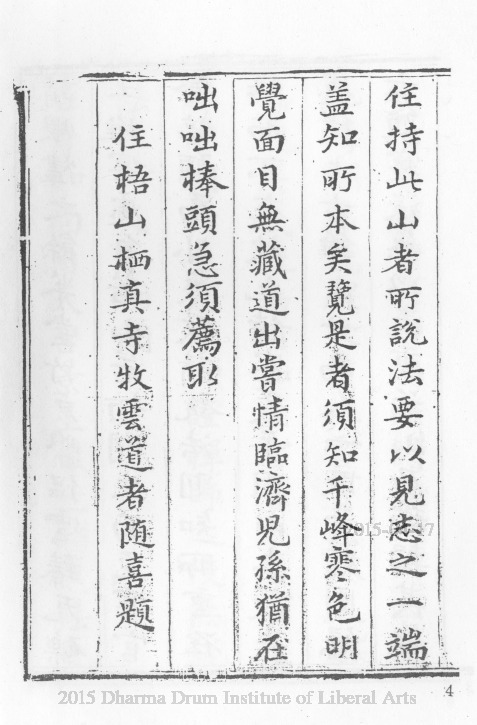 住持此山者所說法要以見志之一端
盖知所本矣覽是者須知千峰寒色明
覺面目無藏道出嘗情臨濟児孫猶在
咄咄棒頭急須薦取
住梧山栖真寺牧雲道者随喜題
4
2015 Dharma Drum Institute of Liberal Arts